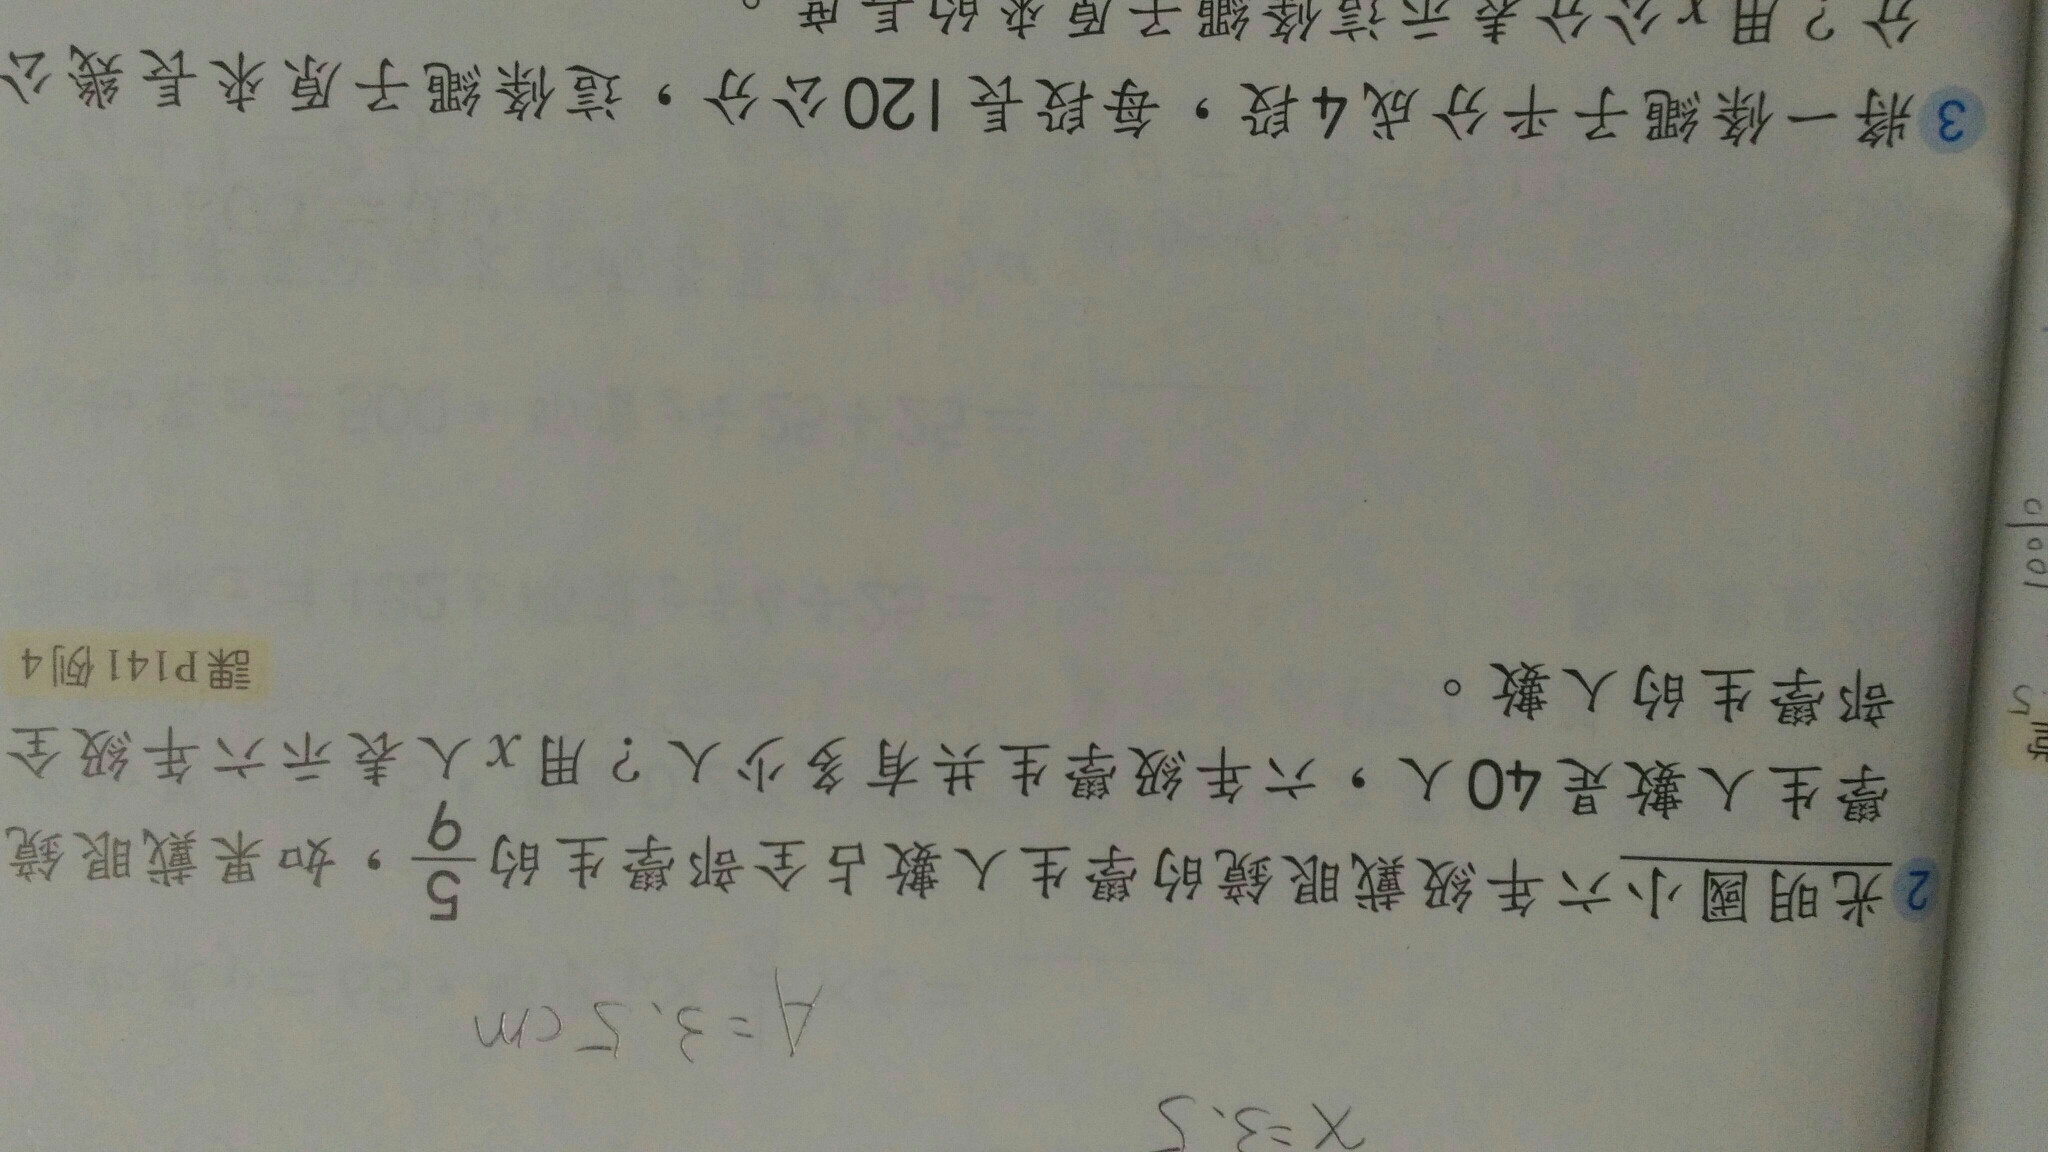 x=3.5
A=3.5cm
2 光明國小六年級戴眼鏡的學生人數占全部學生的5/9，如果戴眼鏡
學生人數是40人，六年級學生共有多少人？用x人表示六年級全
部學生的人數。
課P141例4
3 將一條繩子平分成4段，每段長120公分，這條繩子原來長幾公
分？用x公分表示這條繩子原來的長度。